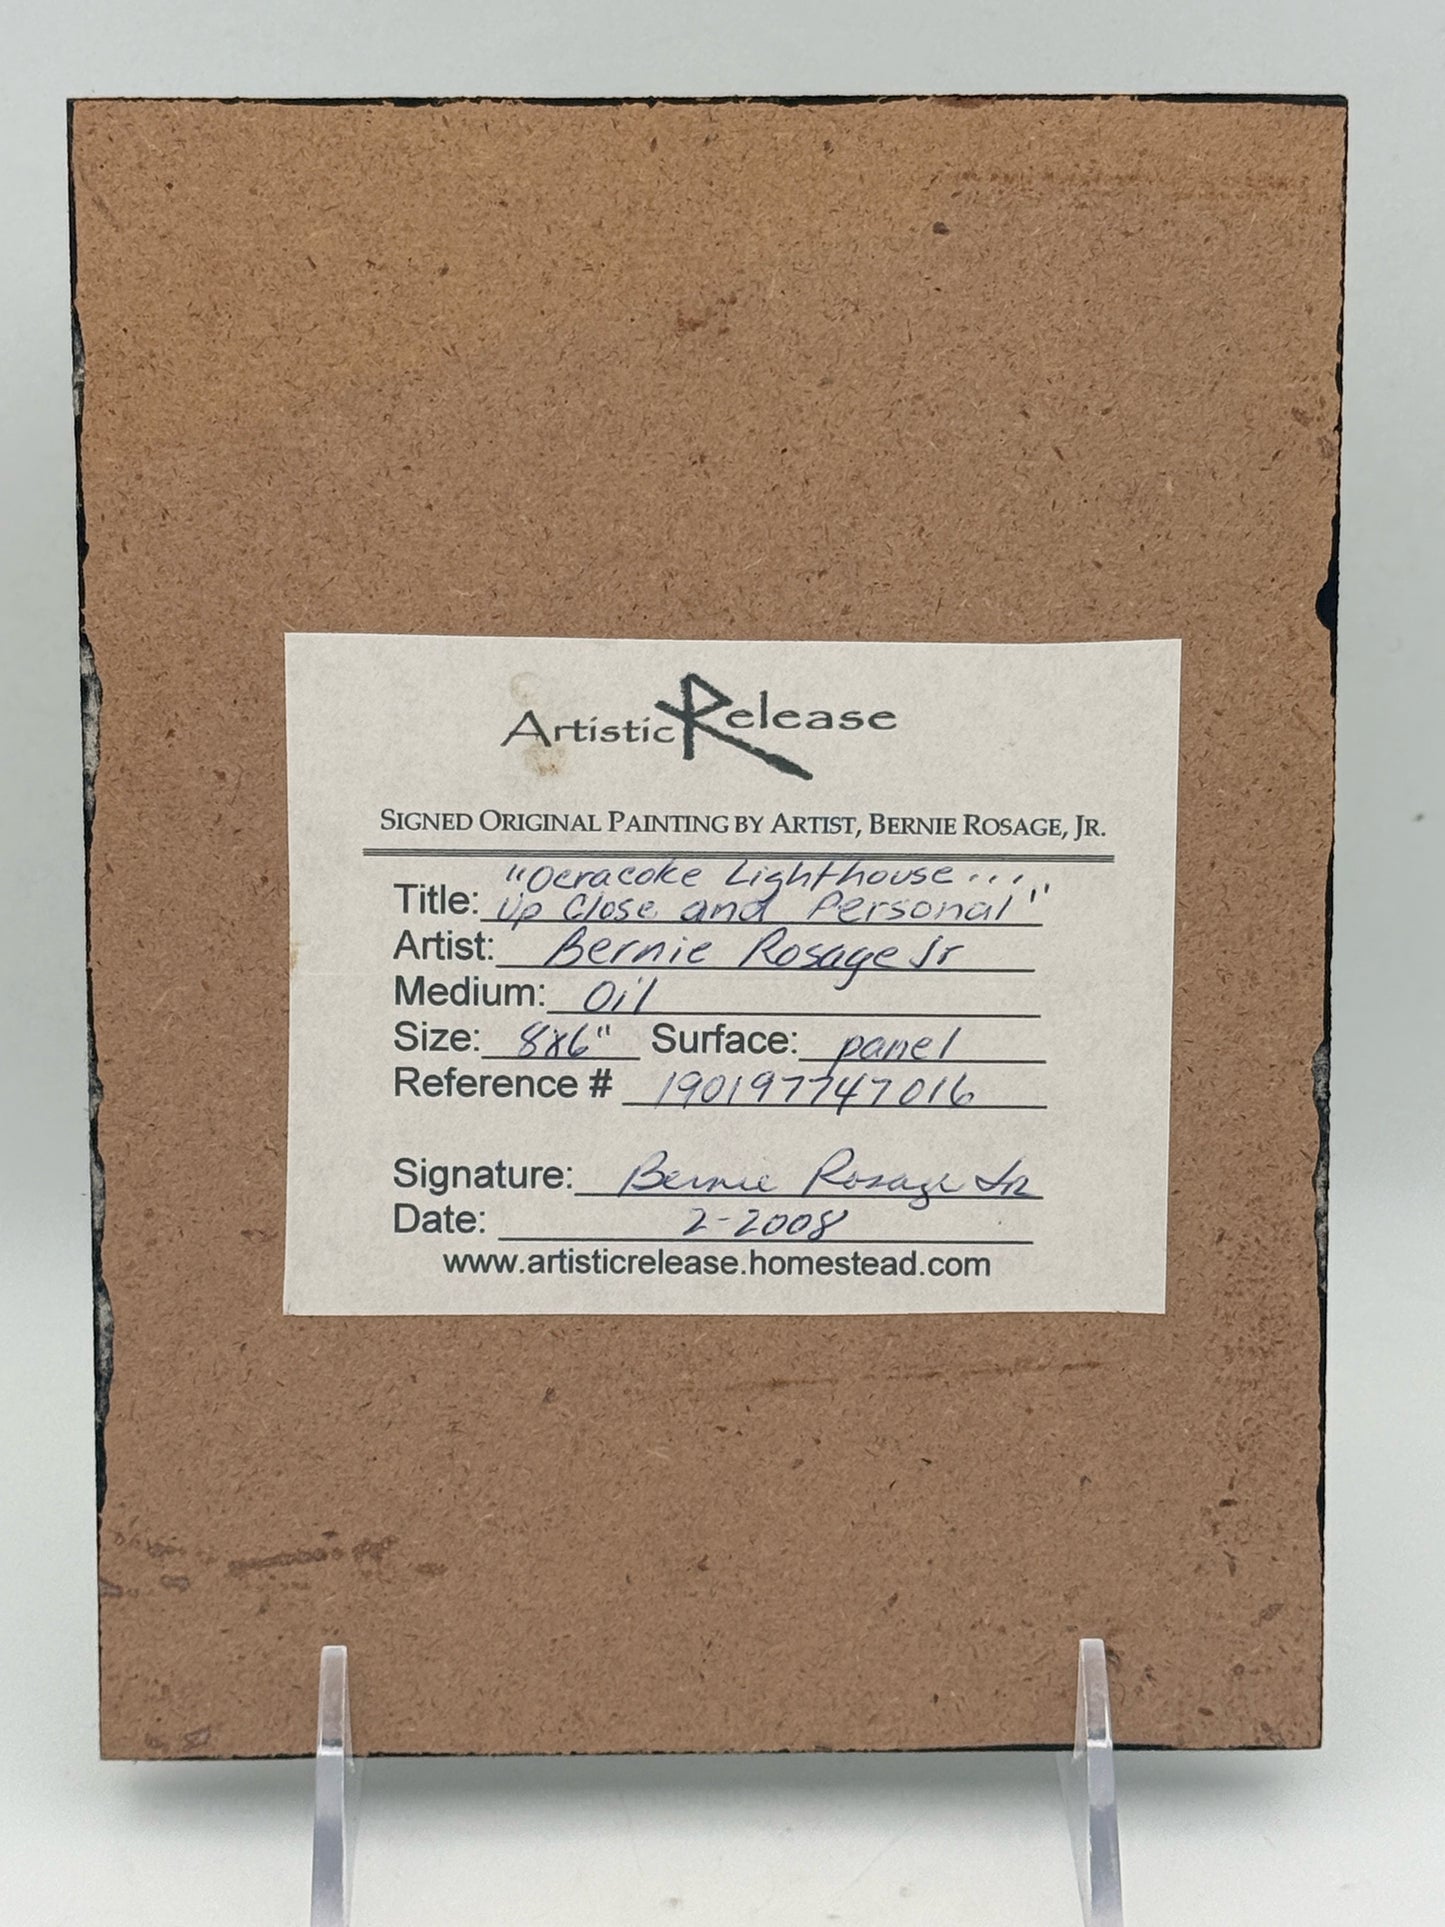 Artistic Release
SIGNED ORIGINAL PAINTING BY ARTIST, BERNIE ROSAGE, JR.
"Ocracoke Lighthouse...
Title: Up Close and Personal"
Artist: Bernie Rosage Jr
Medium: Oil
Size: 8x6" Surface: panel
Reference # 190197747016
Signature: Bernie Rosage Jr
Date: 2-2008
www.artisticrelease.homestead.com